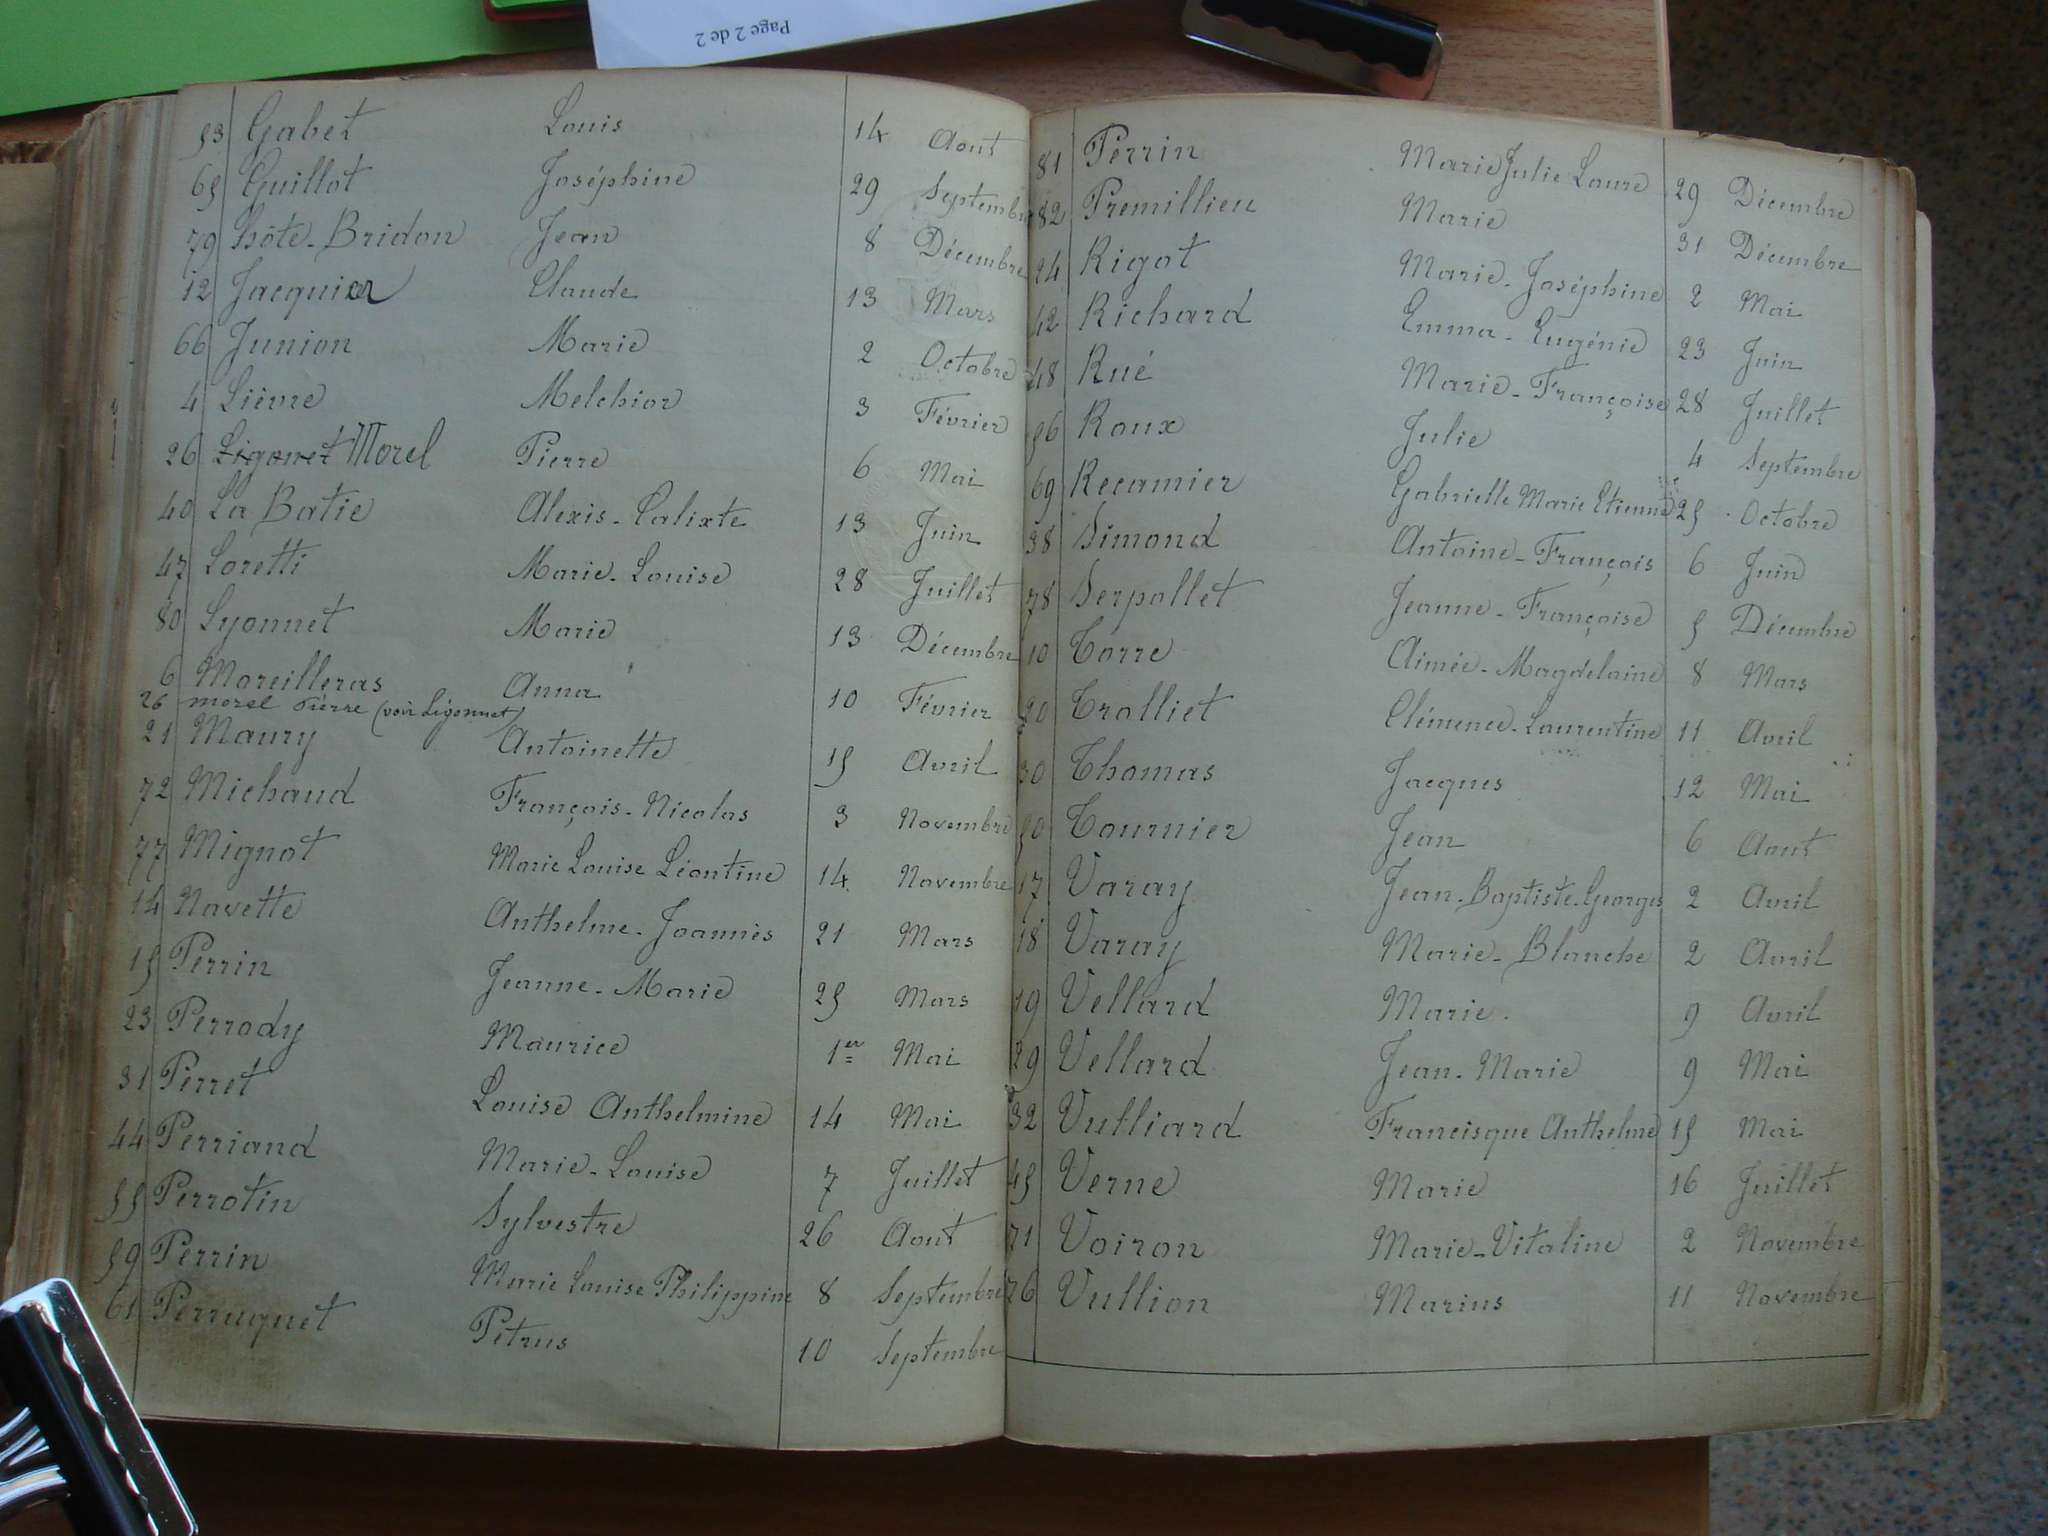 Page 2 de 2
53 Gabet Louis 14 Aout
65 Guillot Joséphine 29 Septembre
79 hôte-Bridon Jean 8 Décembre
12 Jacquier Claude 13 Mars
66 Junion Marie 2 Octobre
4 Lièvre Melchior 3 Février
26 Ligonet Morel Pierre 6 Mai
40 La Batie Alexis-Calixte 13 Juin
47 Loretti Marie-Louise 28 Juillet
80 Lyonnet Marie 13 Décembre
6 Moreilleras Anna 10 Février
26 morel Pierre (voir Ligonnet)
21 Maury Antoinette 15 Avril
72 Michaud François-Nicolas 3 Novembre
77 Mignot Marie Louise Léontine 14 Novembre
14 Navette Anthelme-Joannès 21 Mars
15 Perrin Jeanne-Marie 25 Mars
23 Perrody Maurice 1er Mai
31 Perret Louise Anthelmine 14 Mai
44 Perriand Marie-Louise 7 Juillet
55 Perrotin Sylvestre 26 Aout
59 Perrin Marie Louise Philippine 8 Septembre
61 Perruquet Pétrus 10 Septembre
81 Perrin Marie Julie Laure 29 Décembre
82 Premillieu Marie 31 Décembre
24 Rigot Marie-Joséphine 2 Mai
42 Richard Emma-Eugénie 23 Juin
48 Rué Marie-Françoise 28 Juillet
56 Roux Julie 4 Septembre
69 Recamier Gabrielle Marie Etienne 25 Octobre
38 Simond Antoine-François 6 Juin
78 Serpollet Jeanne-Françoise 5 Décembre
10 Torre Aimée-Magdelaine 8 Mars
20 Trolliet Clémence-Laurentine 11 Avril
30 Thomas Jacques 12 Mai
50 Tournier Jean 6 Aout
17 Varay Jean-Baptiste-Georges 2 Avril
18 Varay Marie-Blanche 2 Avril
19 Vellard Marie. 9 Avril
29 Vellard Jean-Marie 9 Mai
32 Vulliard Francisque Anthelme 15 Mai
45 Verne Marie 16 Juillet
71 Voiron Marie-Vitaline 2 Novembre
76 Vullion Marius 11 Novembre